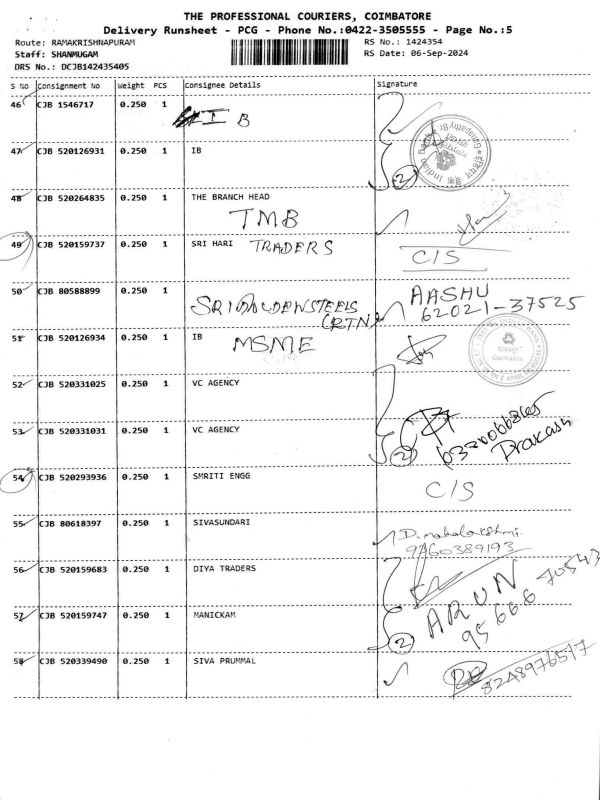 THE PROFESSIONAL COURIERS, COIMBATORE
Delivery Runsheet - PCG - Phone No.:0422-3505555 - Page No.:5
Route: RAMAKRISHNAPURAM
RS No.: 1424354
Staff: SHANMUGAM
RS Date: 06-Sep-2024
DRS No.: DCJB142435405
S No Consignment No Weight PCS Consignee Details Signature
46 CJB 1546717 0.250 1
I B
47 CJB 520126931 0.250 1 IB
Indian Bank
2
48 CJB 520264835 0.250 1 THE BRANCH HEAD
TMB
49 CJB 520159737 0.250 1 SRI HARI TRADERS
C/S
50 CJB 80588899 0.250 1
AASHU
62021-37525
51 CJB 520126934 0.250 1 IB
MSME
Coimbatore
52 CJB 520331025 0.250 1 VC AGENCY
53 CJB 520331031 0.250 1 VC AGENCY
2
Prakash
54 CJB 520293936 0.250 1 SMRITI ENGG
C/S
55 CJB 80618397 0.250 1 SIVASUNDARI
D. mahalakshmi.
9760389193
56 CJB 520159683 0.250 1 DIYA TRADERS
57 CJB 520159747 0.250 1 MANICKAM
2
ARUN
95666 70543
58 CJB 520339490 0.250 1 SIVA PRUMMAL
8248976517